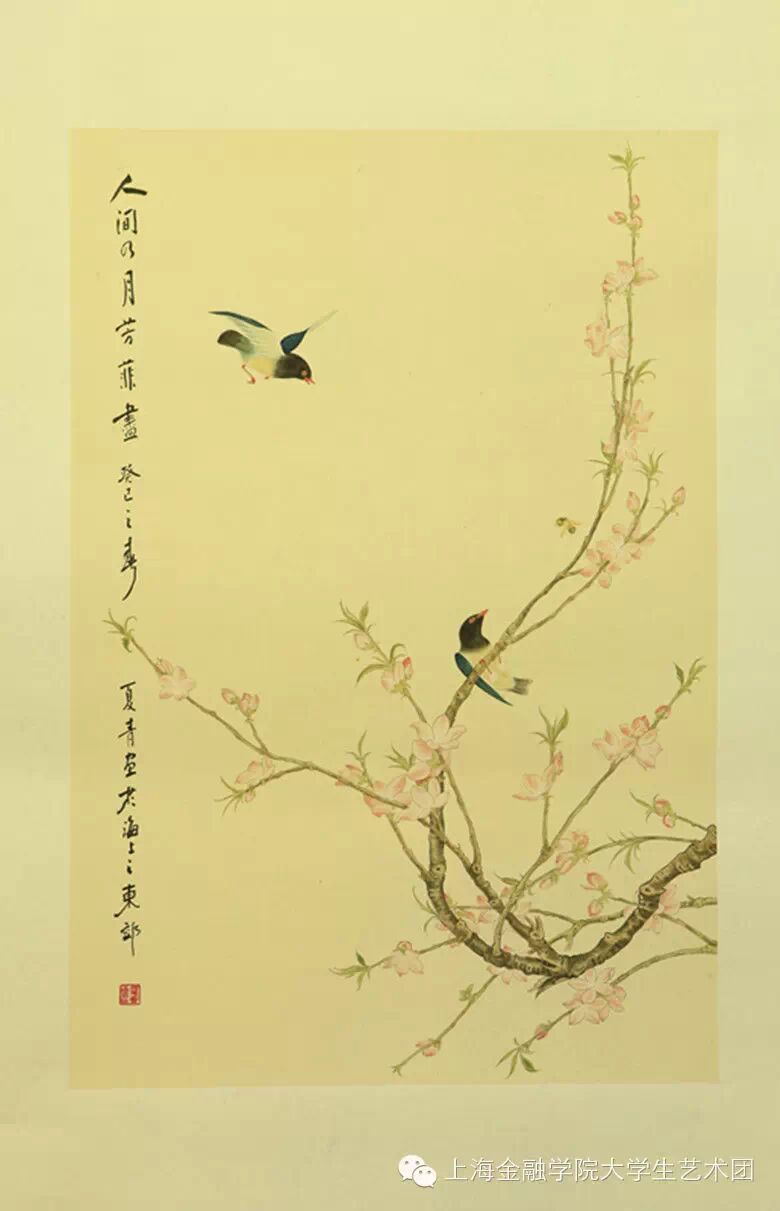 人间四月芳菲盡 癸巳之春 夏青画於海上之東郊
上海金融学院大学生艺术团